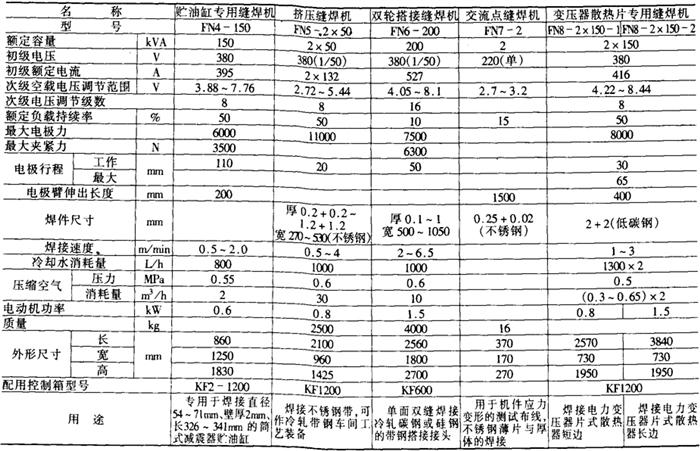 名称 贮油缸专用缝焊机 挤压缝焊机 双轮搭接缝焊机 交流点缝焊机 变压器散热片专用缝焊机
型号 FN4-150 FN5-2×50 FN6-200 FN7-2 FN8-2×150-1 FN8-2×150-2
额定容量 kVA 150 2×50 200 2 2×150
初级电压 V 380 380(1/50) 380(1/50) 220(单) 380
初级额定电流 A 395 2×132 527 416
次级空载电压调节范围 V 3.88~7.76 2.72~5.44 4.05~8.1 2.7~3.2 4.22~8.44
次级电压调节级数 8 8 16 8
额定负载持续率 % 50 50 10 15 50
最大电极力 N 6000 11000 7500 8000
最大夹紧力 3500 6300
电极行程 工作 mm 110 20 50 30
最大 65
电极臂伸出长度 200 1500 400
焊件尺寸 mm 厚0.2+0.2~1.2+1.2 宽270~530(不锈钢) 厚0.1~1 宽500~1050 0.25+0.02(不锈钢) 2+2(低碳钢)
焊接速度 m/min 0.5~2.0 0.5~4 2~6.5 1~3
冷却水消耗量 L/h 800 1000 1000 1300×2
压缩空气 压力 MPa 0.55 0.6 0.6 0.5
消耗量 m³/h 2 30 10 (0.3~0.65)×2
电动机功率 kW 0.6 0.8 1.5 0.8 1.5
质量 kg 2500 4000 16
外形尺寸 长 mm 860 2100 2560 370 2570 3840
宽 1250 960 1800 170 730 730
高 1830 1425 2700 270 1950 1950
配用控制箱型号 KF2-1200 KF1200 KF600 KF1200
用途 专用于焊接直径54~71mm、壁厚2mm、长326~341mm的筒式减震器贮油缸 焊接不锈钢带,可作冷轧带钢车间工艺装备 单面双缝焊接冷轧碳钢或硅钢的带钢搭接接头 用于机件应力变形的测试布线,不锈钢薄片与厚体的焊接 焊接电力变压器片式散热器短边 焊接电力变压器片式散热器长边